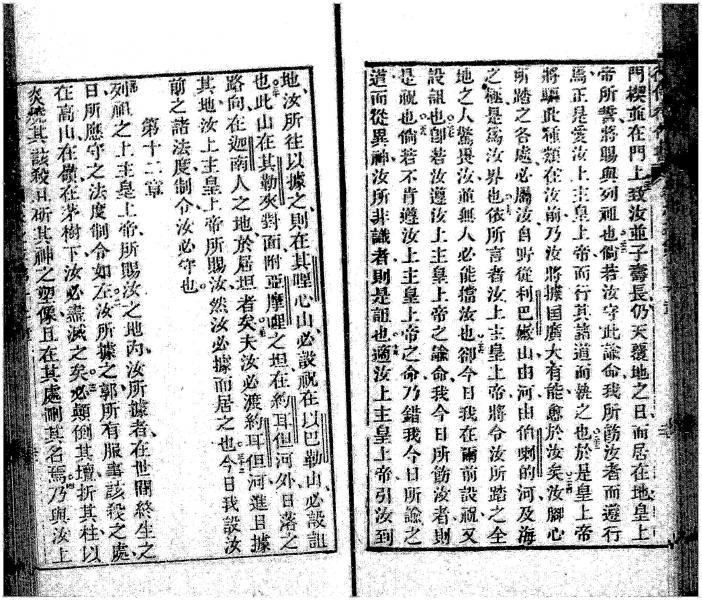 門楔並在門上致汝並子壽長仍天覆地之日而居在地皇上
帝所誓將賜與列祖也倘若汝守此諭命我所飭汝者而遵行
焉正是愛汝上主皇上帝而行其諸道而執之也於是皇上帝
將驅此種類在汝前乃汝將據國廣大有能愈於汝矣汝脚心
所踏之各處必屬汝自野從利巴嫩山由河由伯喇的河及海
之極是爲汝界也依所言者汝上主皇上帝將令汝所踏之全
地之人驚畏汝並無人必能擋汝也卻今日我在爾前設祝又
設詛也卽若汝遵汝上主皇上帝之諭命我今日所飭汝者則
是祝也倘若不肯遵汝上主皇上帝之命乃錯我今日所諭之
道而從異神汝所非識者則是詛也適汝上主皇上帝引汝到
地汝所往以據之則在其哩心山必設祝在以巴勒山必設詛
也此山在其勒夾對面附亞摩哩之坦在約耳但河外日落之
路向在迦南人之地於居坦者矣夫汝必渡約耳但河進且據
其地汝上主皇上帝所賜汝然汝必據而居之也今日我設汝
前之諸法度制令汝必守也
第十二章
列祖之上主皇上帝所賜汝之地內汝所據者在世間終生之
日所應守之法度制令如左汝所據之郭所有服事該殺之處
在高山在儺在茅樹下汝必盡滅之矣必顛倒其壇折其柱以
炎燒其該殺且斫其神之塑像且在其處刪其名焉乃與汝上